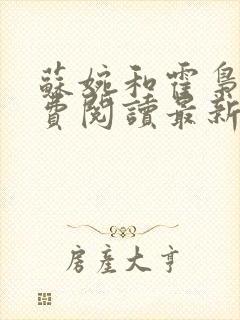 蘇婉和霍梟
費閱讀最新
房產大亨